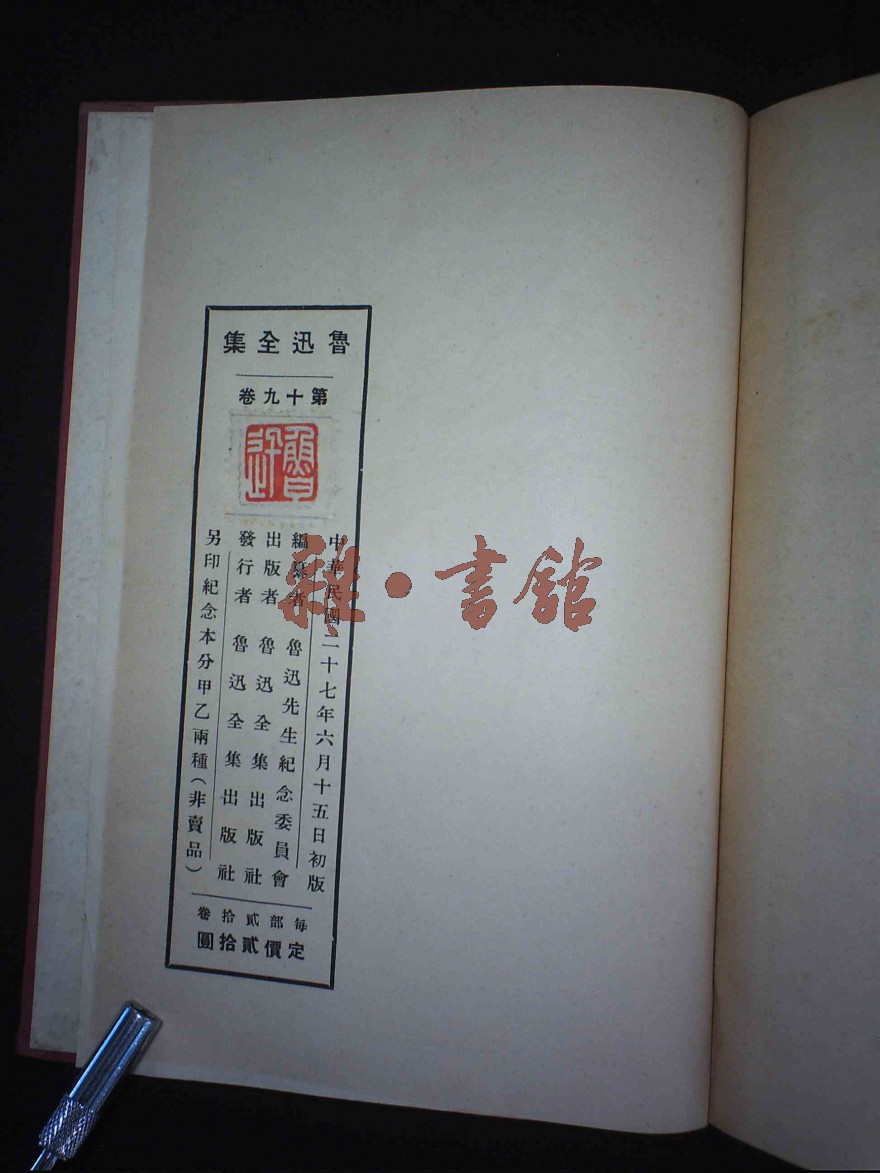 魯迅全集
第十九卷
魯迅
中華民國二十七年六月十五日初版
編纂者 魯迅先生紀念委員會
出版者 魯迅全集出版社
發行者 魯迅全集出版社
另印紀念本分甲乙兩種(非賣品)
每部貳拾卷
定價貳拾圓
雜·書館